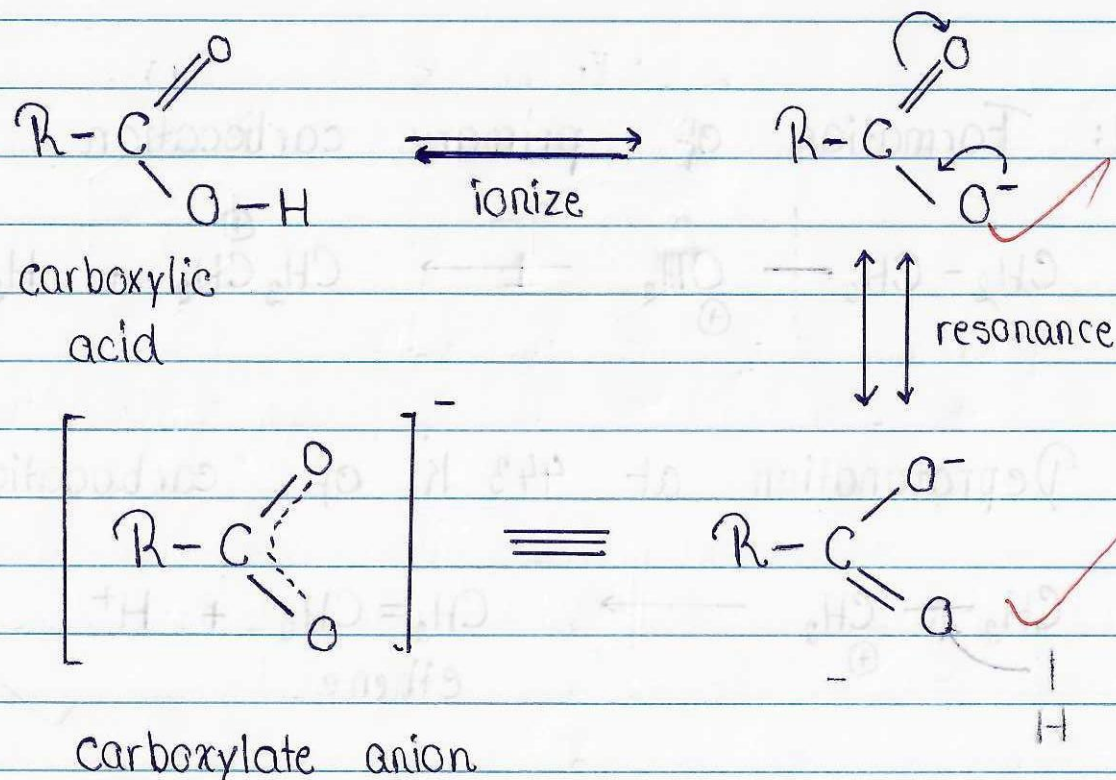 O O
R-C ⇌ R-C
O-H ionize O⁻
carboxylic
acid
resonance
[ O ]⁻ O⁻
R-C ≡ R-C
O O
- H
carboxylate anion